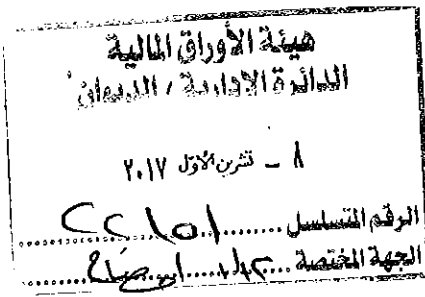 هيئة الأوراق المالية
الدائرة الإدارية / الديوان
٨ - تشرين الأول ٢٠١٧
الرقم المتسلسل
الجهة المختصة